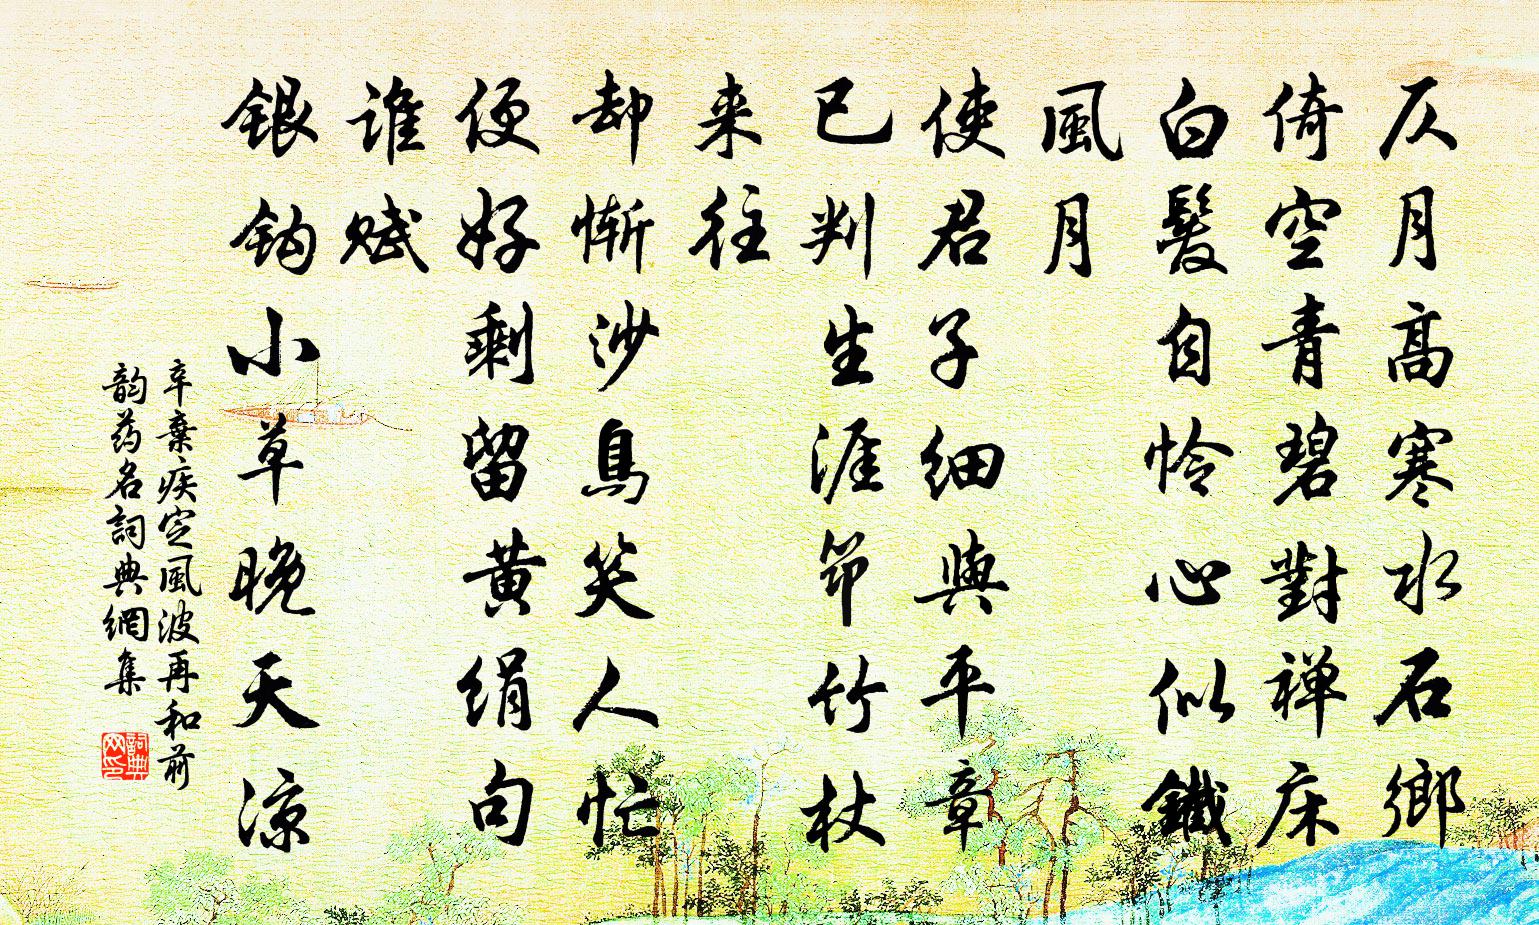 仄月高寒水石鄉
倚空青碧對禅床
白髪自怜心似鐵
風月
使君子細與平章
已判生涯筇竹杖
来往
却慚沙鳥笑人忙
便好剩留黄絹句
谁赋
銀鈎小草晚天凉
辛棄疾定風波再和前
韵药名詞典網集
詞典网印